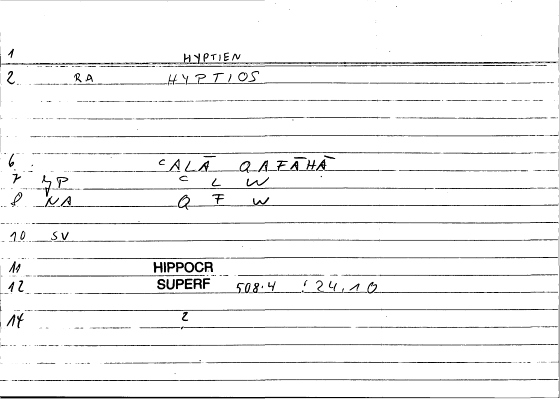 1 HYPTIEN
2 RA HYPTIOS
6 ᶜALĀ QAFĀHĀ
7 ȜP C L W
8 NA Q F W
10 SV
11 HIPPOCR
12 SUPERF 508.4 :24.10
14 2